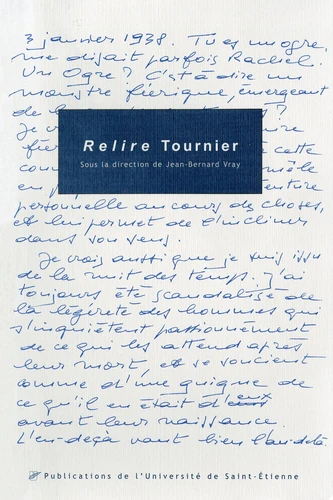 3 janvier 1938. Tu es un ogre,
me disait parfois Rachel.
Un Ogre ? C'est à dire un
monstre féerique, émergeant
de
Relire Tournier
Sous la direction de Jean-Bernard Vray
cette
mêle
en
personnelle au cours des choses,
et lui permet de l'incliner
dans son sens.
Je crois aussi que je suis issu
de la nuit des temps. J'ai
toujours été scandalisé de
la légèreté des hommes qui
s'inquiètent passionnément
de ce qui les attend après
leur mort, et se soucient
comme d'une guigne de
ce qu'il en était d'eux
avant leur naissance.
L'en-deçà vaut bien l'au-delà.
Publications de l'Université de Saint-Étienne